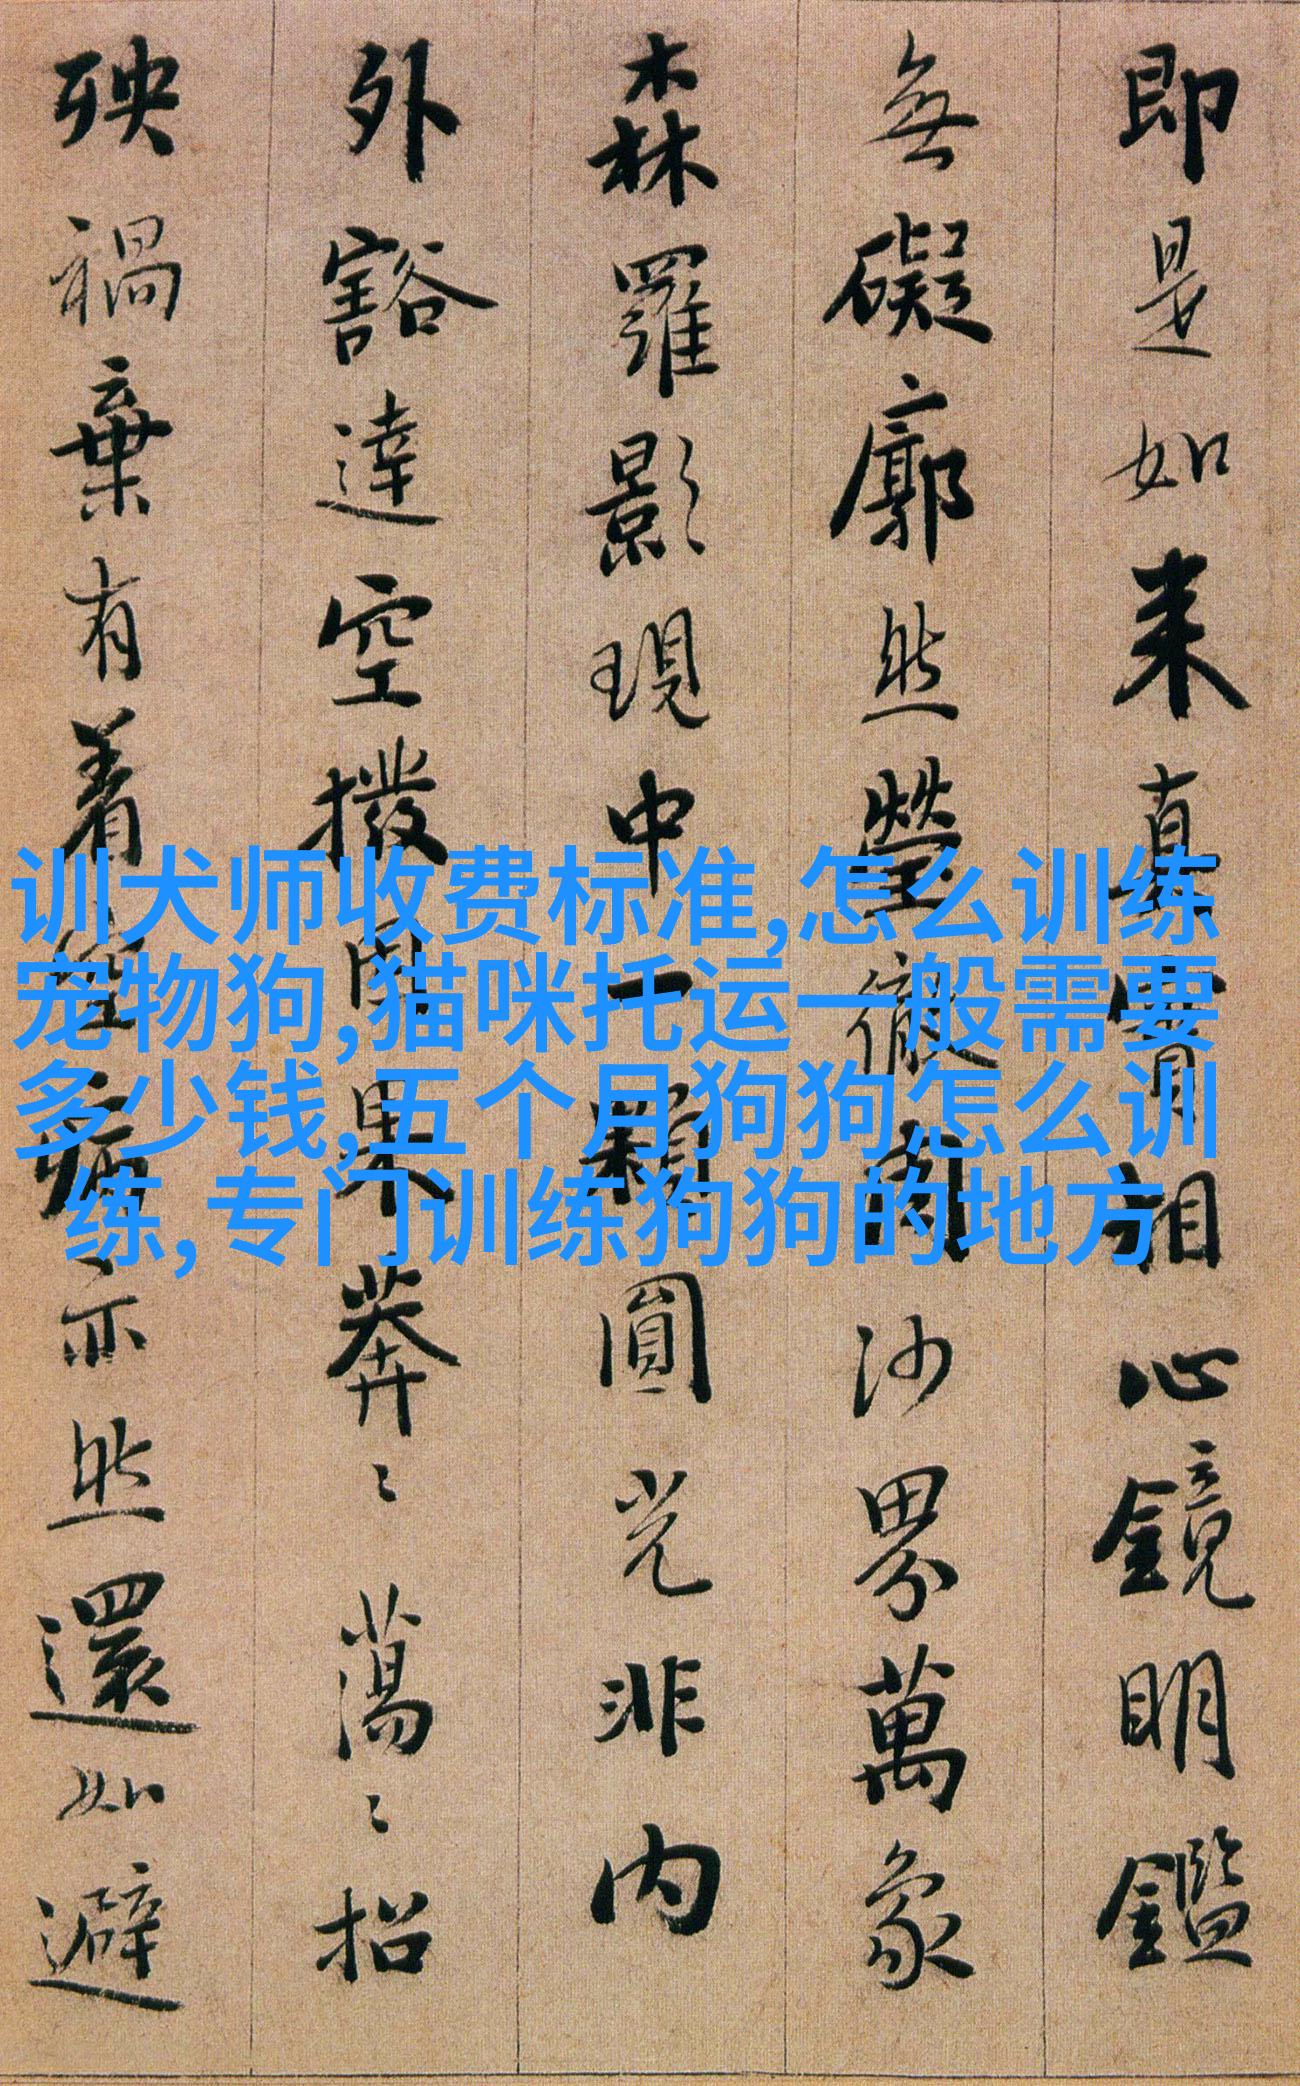 即是如来真實相心鏡明鑑
無礙廓然瑩徹周沙界萬象
森羅影現中一顆圓光非内
外豁達空撥因果莽〻蕩〻招
殃禍棄有着空病亦然還如避
训犬师收费标准,怎么训练
宠物狗,猫咪托运一般需要
多少钱,五个月狗狗怎么训
练,专门训练狗狗的地方